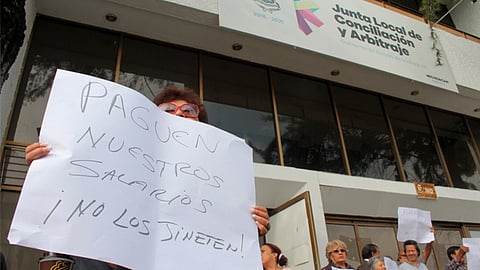 Junta Local de
Conciliación
y Arbitraje
PAGUEN
NUESTROS
SALARIOS
¡NO LOS JINETEN!